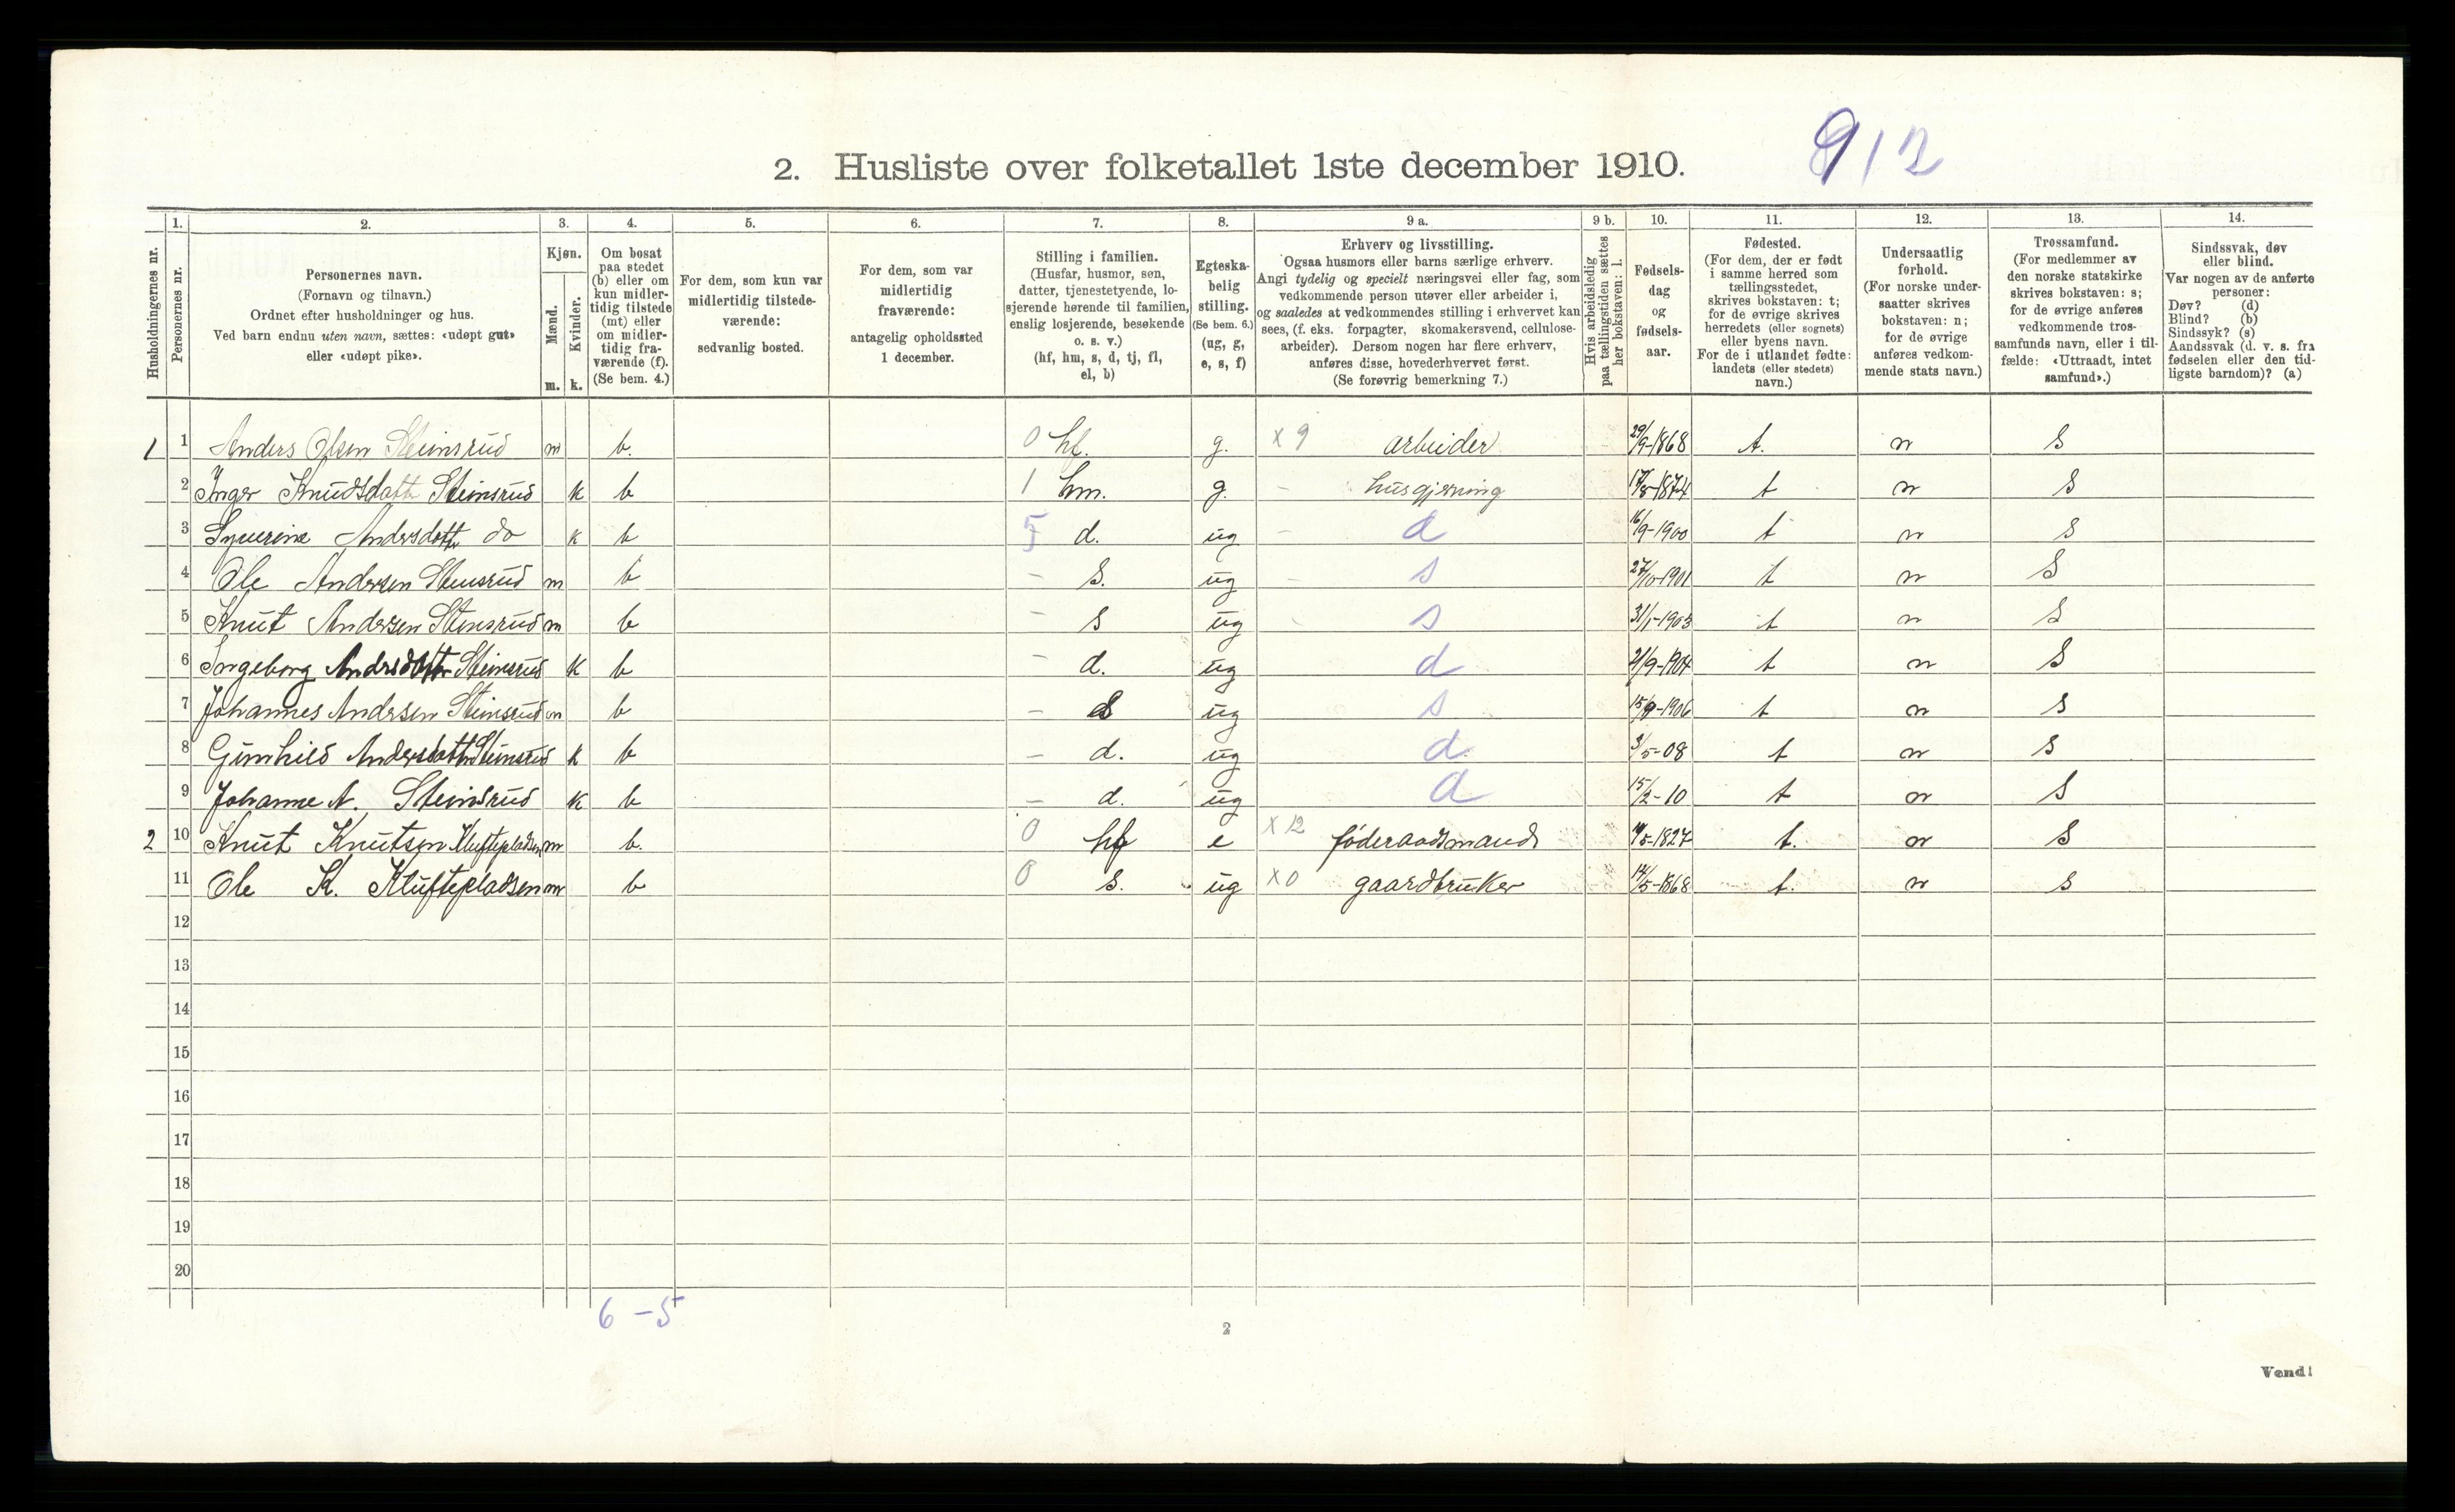 2. Husliste over folketallet 1ste december 1910. 912
1. 2. 3. 4. 5. 6. 7. 8. 9 a. 9 b. 10. 11. 12. 13. 14.
Husholdningernes nr.
Personernes nr.
Personernes navn.
(Fornavn og tilnavn.)
Ordnet efter husholdninger og hus.
Ved barn endnu uten navn, sættes: «udøpt gut»
eller «udøpt pike».
Kjøn.
Mænd.
m.
Kvinder.
k.
Om bosat
paa stedet
(b) eller om
kun midler-
tidig tilstede
(mt) eller
om midler-
tidig fra-
værende (f).
(Se bem. 4.)
For dem, som kun var
midlertidig tilstede-
værende:
sedvanlig bosted.
For dem, som var
midlertidig
fraværende:
antagelig opholdssted
1 december.
Stilling i familien.
(Husfar, husmor, søn,
datter, tjenestetyende, lo-
sjerende hørende til familien,
enslig losjerende, besøkende
o. s. v.)
(hf, hm, s, d, tj, fl,
el, b)
Egteska-
belig
stilling.
(Se bem. 6.)
(ug, g,
e, s, f)
Erhverv og livsstilling.
Ogsaa husmors eller barns særlige erhverv.
Angi tydelig og specielt næringsvei eller fag, som
vedkommende person utøver eller arbeider i,
og saaledes at vedkommendes stilling i erhvervet kan
sees, (f. eks. forpagter, skomakersvend, cellulose-
arbeider). Dersom nogen har flere erhverv,
anføres disse, hovederhvervet først.
(Se forøvrig bemerkning 7.)
Hvis arbeidsledig
paa tællingstiden sættes
her bokstaven: l.
Fødsels-
dag
og
fødsels-
aar.
Fødested.
(For dem, der er født
i samme herred som
tællingsstedet,
skrives bokstaven: t;
for de øvrige skrives
herredets (eller sognets)
eller byens navn.
For de i utlandet fødte:
landets (eller stedets)
navn.)
Undersaatlig
forhold.
(For norske under-
saatter skrives
bokstaven: n;
for de øvrige
anføres vedkom-
mende stats navn.)
Trossamfund.
(For medlemmer av
den norske statskirke
skrives bokstaven: s;
for de øvrige anføres
vedkommende tros-
samfunds navn, eller i til-
fælde: «Uttraadt, intet
samfund».)
Sindssvak, døv
eller blind.
Var nogen av de anførte
personer:
Døv? (d)
Blind? (b)
Sindssyk? (s)
Aandssvak (d. v. s. fra
fødselen eller den tid-
ligste barndom)? (a)
1 1 Anders Olsen Steinsrud m b. 0 hf. g. x 9 arbeider 29/9-1868 t. n s
2 Inger Knudsdatt Steinsrud k b 1 hm. g. - husgjerning 17/8-1874 t n s
3 Syverine Andersdatt do k b 5 d. ug - d 16/9-1900 t n s
4 Ole Andersen Steinsrud m b - s. ug - s 27/10-1901 t n s
5 Knut Andersen Stensrud m b - s ug - s 31/1-1903 t n s
6 Ingeborg Andersdatter Steinsrud k b - d. ug d 21/9-1904 t n s
7 Johannes Andersen Steinsrud m b - s ug s 15/9-1906 t n s
8 Gunhild Andersdatter Steinsrud k b - d. ug d. 3/5-08 t n s
9 Johanne A. Steinsrud k b - d. ug d 15/2-10 t n s
2 10 Knut Knutsen Kluftepladsen m b. 0 hf e x 12 føderaadsmand /5-1827 t. n s
11 Ole K. Kluftepladsen m b 0 s. ug x 0 gaardbruker 14/5-1868 t. n s
12
13
14
15
16
17
18
19
20
6 - 5
2
Vend!